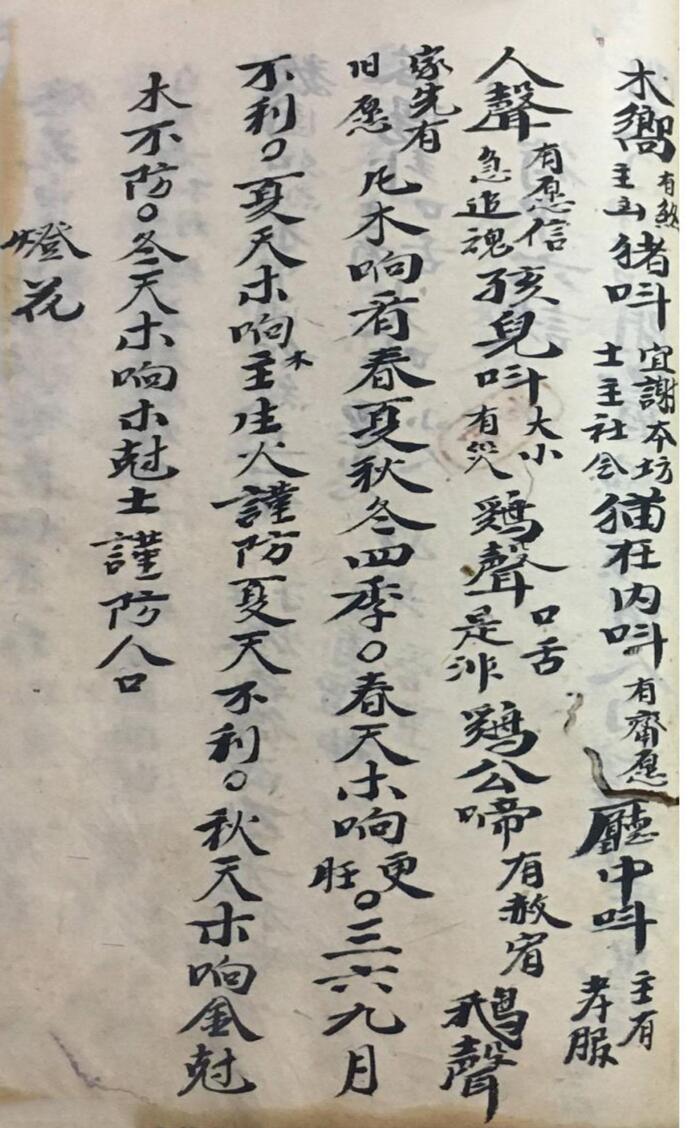 木嚮有煞主凶猪呌宜謝本坊土主社令猫在内呌有齋愿廳中呌主有孝服
人聲有愿信急追魂孩兒呌大小有災鷄聲口舌是非鷄公啼有赦宥鵝聲
家先有旧愿凡木响看春夏秋冬四季。春天木响更旺。三六九月
不利。夏天木响木主生火謹防夏天不利。秋天木响金尅
木不防。冬天木响木尅土謹防人口
燈花